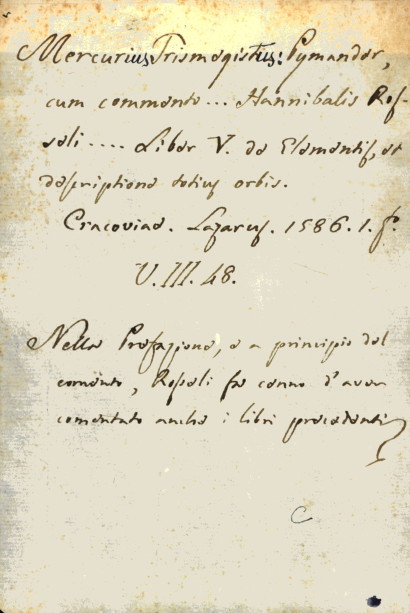 Mercurius Trismegistus: Pymander,
cum commento... Hannibalis Ros-
seli.... Liber V. de Elementis, et
descriptione totius orbis.
Cracoviae. Lazarus. 1586. 1. fo.
V. III. 48.
Nella Prefazione, e a principio del
comento, Roseli fa cenno d'aver
comentato anche i libri precedenti
C